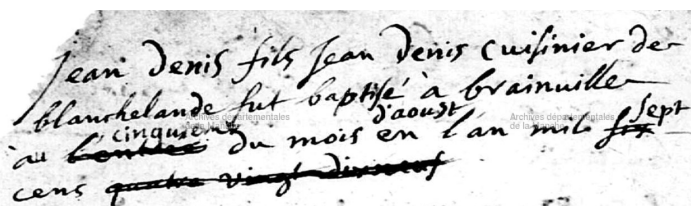 jean denis fils jean denis cuisinier de
blanchelande fut baptisé à brainville
au cinquieme du mois d'aoust en l'an mil six sept
cens quatre vingt dixneuf
Archives départementales
de la Manche
Archives départementales
de la Manche